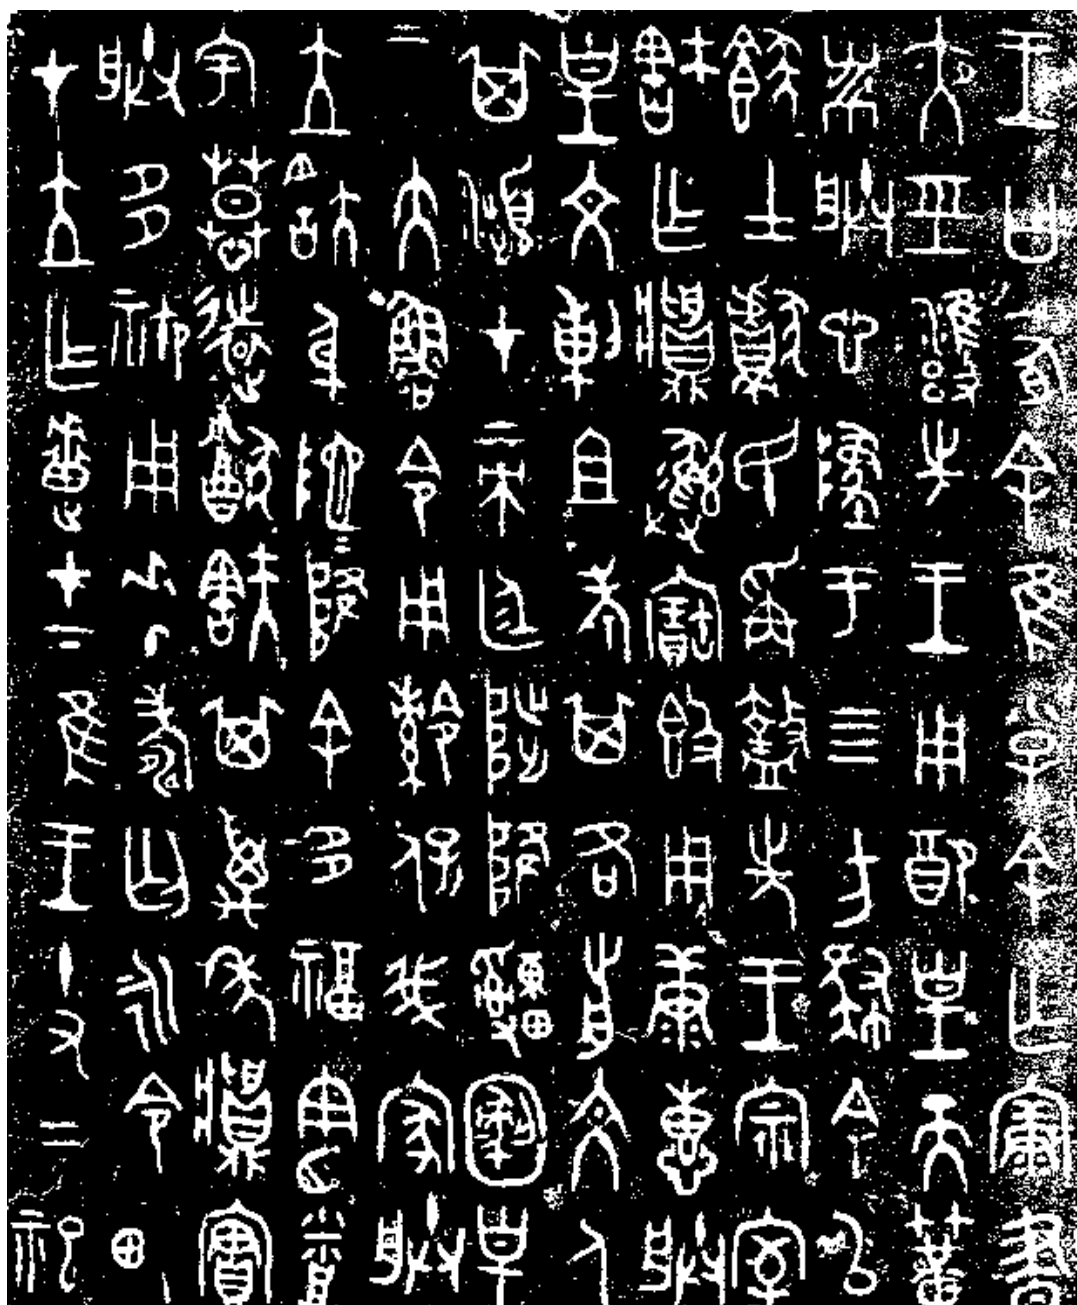 王曰有余隹小子余亡康晝
夜巠雍先王用配皇天簧
黹朕心墜于四方肆余以
𩛥士獻民再盩先王宗室
㝬乍𩰫彝寶𣪘用康惠朕
皇文剌且考其各前文人
其瀕才帝廷陟降𤕌圂皇
帝大魯令用𩁹保我家朕
立㝬身阤=降余多福憲烝
宇慕遠猷㝬其萬年𩰫實
朕多禦用𠦪壽匄永令畯
才立乍疐才下隹王十又二祀